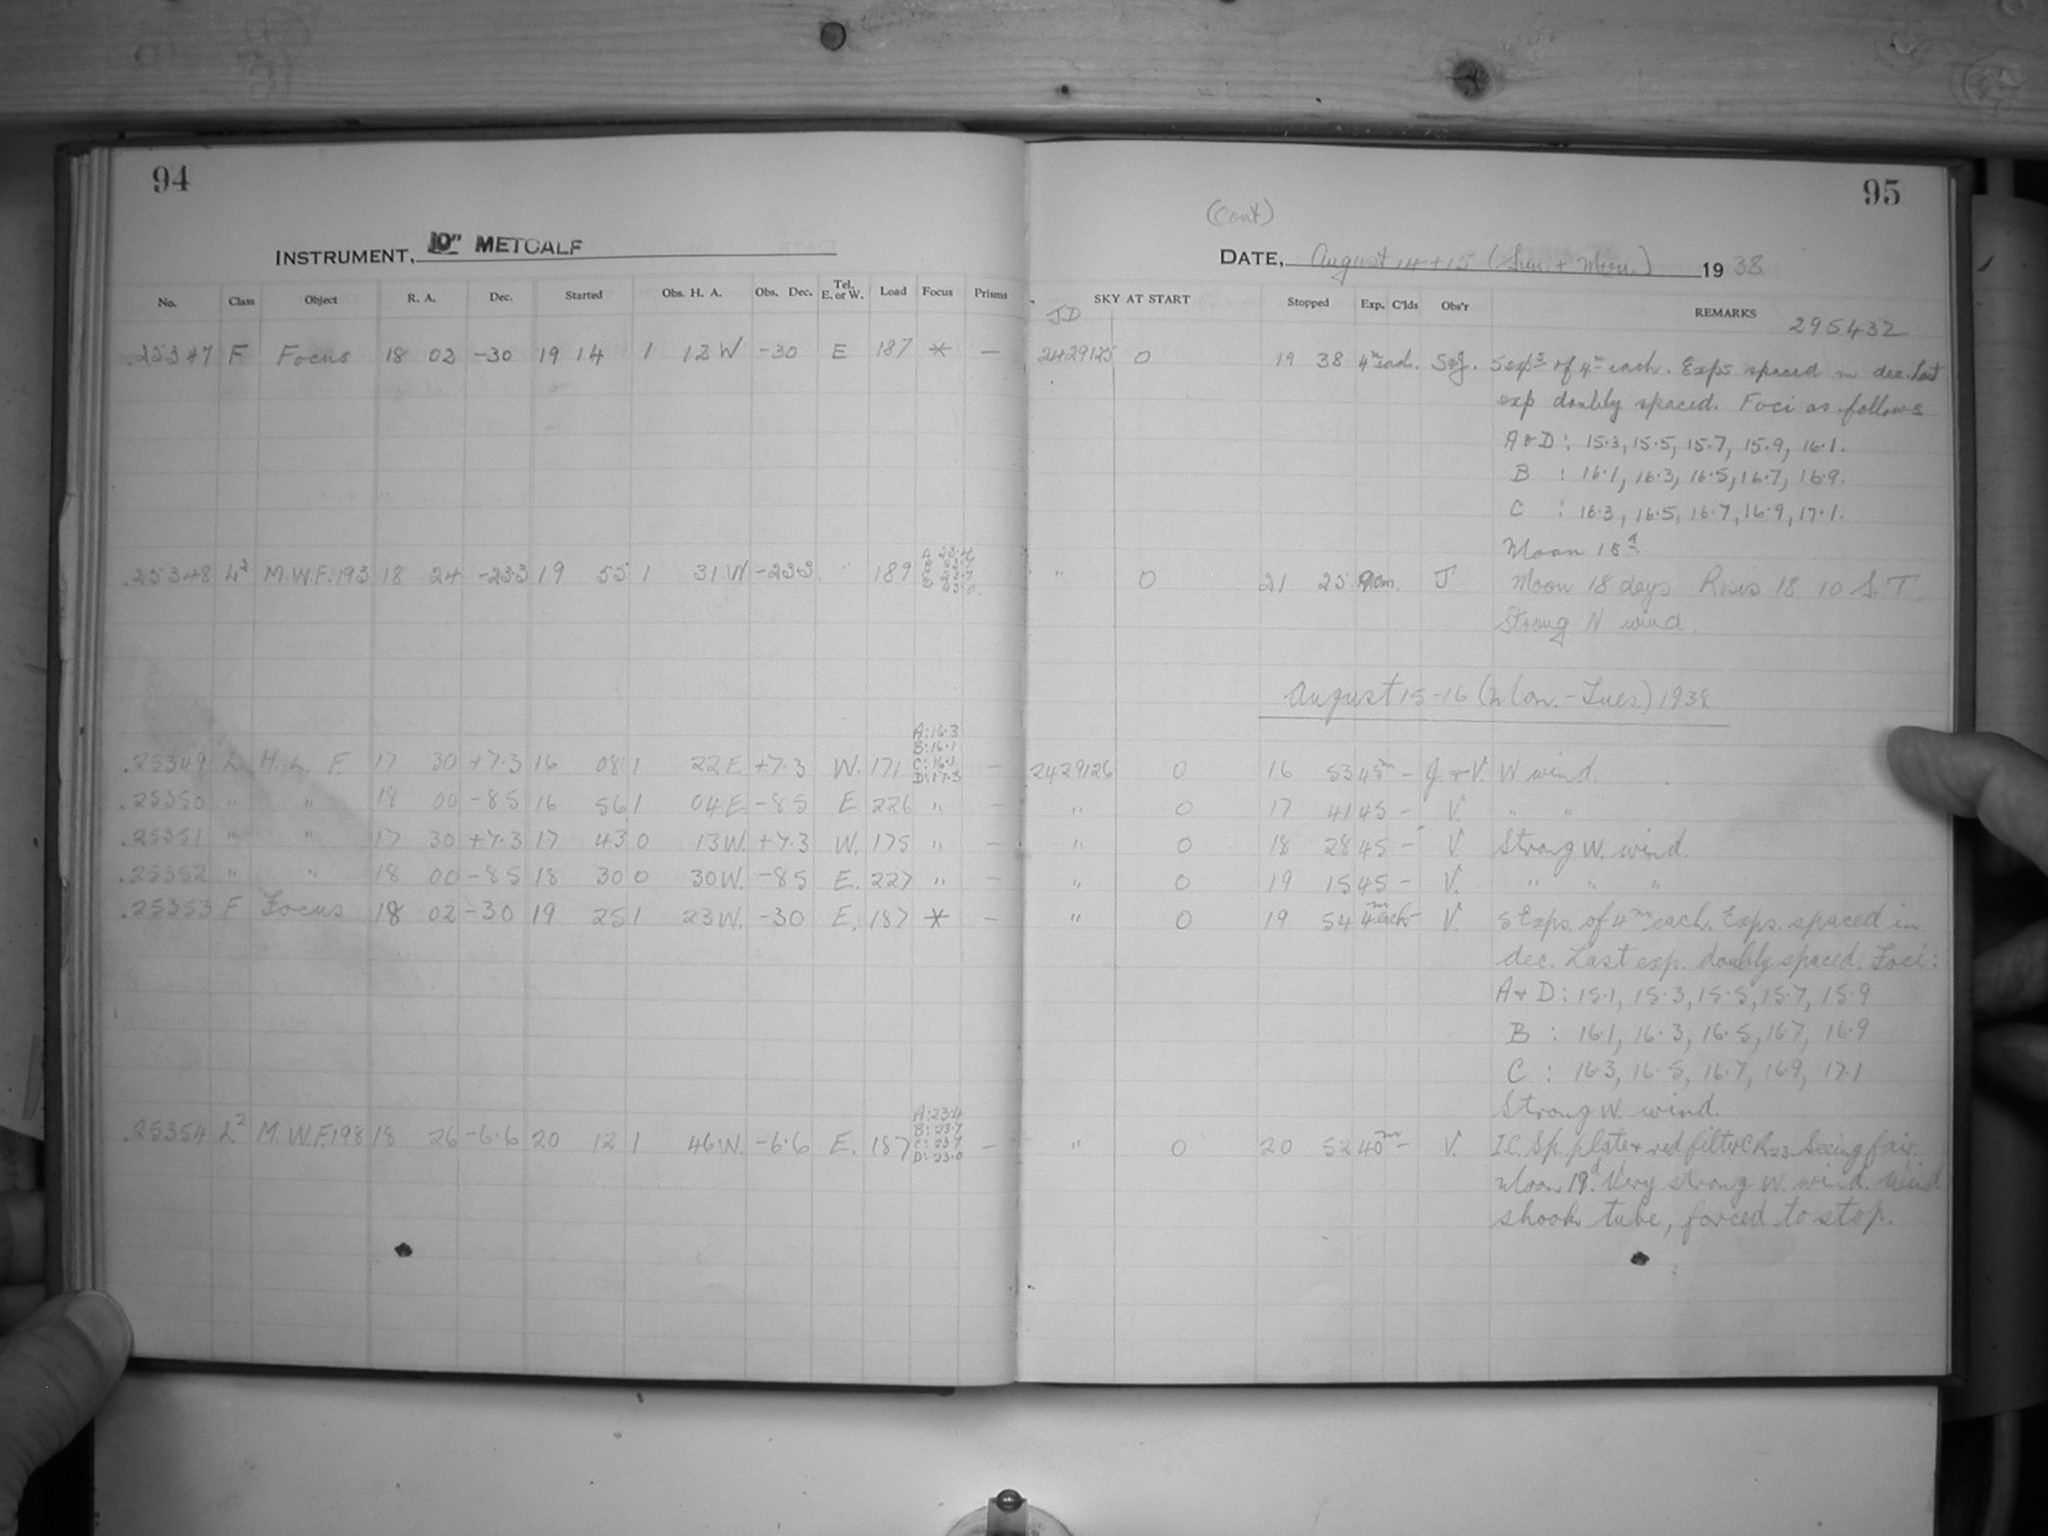 94
INSTRUMENT, 10" METCALF
No. Class Object R. A. Dec. Started Obs. H. A. Obs. Dec. Tel. E. or W. Load Focus Prisms
.25347 F Focus 18 02 -30 19 14 1 12 W -30 E 187 * —
.25348 L² M.W.F. 193 18 24 -23.3 19 55 1 31 W -23.3 " 189
.25349 L H. L. F. 17 30 +7.3 16 08 1 22 E +7.3 W. 171 A: 16.3 B: 16.1 C: 16.1 D: 17.3 —
.25350 " " 18 00 -85 16 56 1 04 E -85 E 226 " —
.25351 " " 17 30 +7.3 17 43 0 13 W. +7.3 W. 175 " —
.25352 " " 18 00 -85 18 30 0 30 W. -85 E. 227 " —
.25353 F Focus 18 02 -30 19 25 1 23 W. -30 E. 187 * —
.25354 L² M.W.F. 198 18 26 -6.6 20 12 1 46 W. -6.6 E. 187 A: 23.4 B: 23.7 C: 23.7 D: 23.0 —
95
(Cont)
DATE, August 14 + 15 (Sun. + Mon.) 1938
SKY AT START Stopped Exp. C'lds Obs'r REMARKS
JD
295432
2429125 0 19 38 4m each. 5 exps of 4m each. Exps spaced in dec. Last
exp doubly spaced. Foci as follows
A & D : 15.3, 15.5, 15.7, 15.9, 16.1.
B : 16.1, 16.3, 16.5, 16.7, 16.9.
C : 16.3, 16.5, 16.7, 16.9, 17.1.
Moon 18d
" 0 21 25 90m. J Moon 18 days Rises 18 10 S.T.
Strong N wind.
August 15-16 (Mon. - Tues.) 1938
2429126 0 16 53 45m - J. + V. W. wind.
" 0 17 41 45 - V. " "
" 0 18 28 45 - V. Strong W. wind.
" 0 19 15 45 - V. " " "
" 0 19 54 4m each - V. 5 Exps. of 4m each. Exps. spaced in
dec. Last exp. doubly spaced. Foci:
A + D : 15.1, 15.3, 15.5, 15.7, 15.9
B : 16.1, 16.3, 16.5, 16.7, 16.9
C : 16.3, 16.5, 16.7, 16.9, 17.1
Strong W. wind.
" 0 20 52 40m - V. I.C. Sp. plate + red filter C R23. Seeing fair.
Moon 19d. Very strong W. wind. Wind
shook tube, forced to stop.